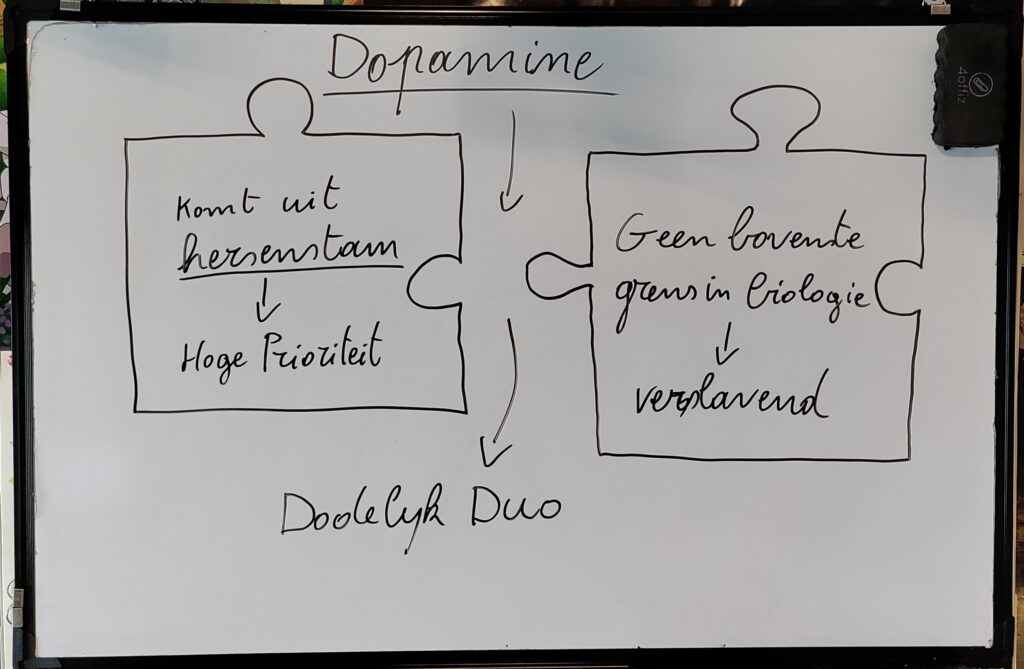 Dopamine
Komt uit
hersenstam
Hoge Prioriteit
Geen bovenste
grens in biologie
verslavend
Dodelijk Duo
4offiz